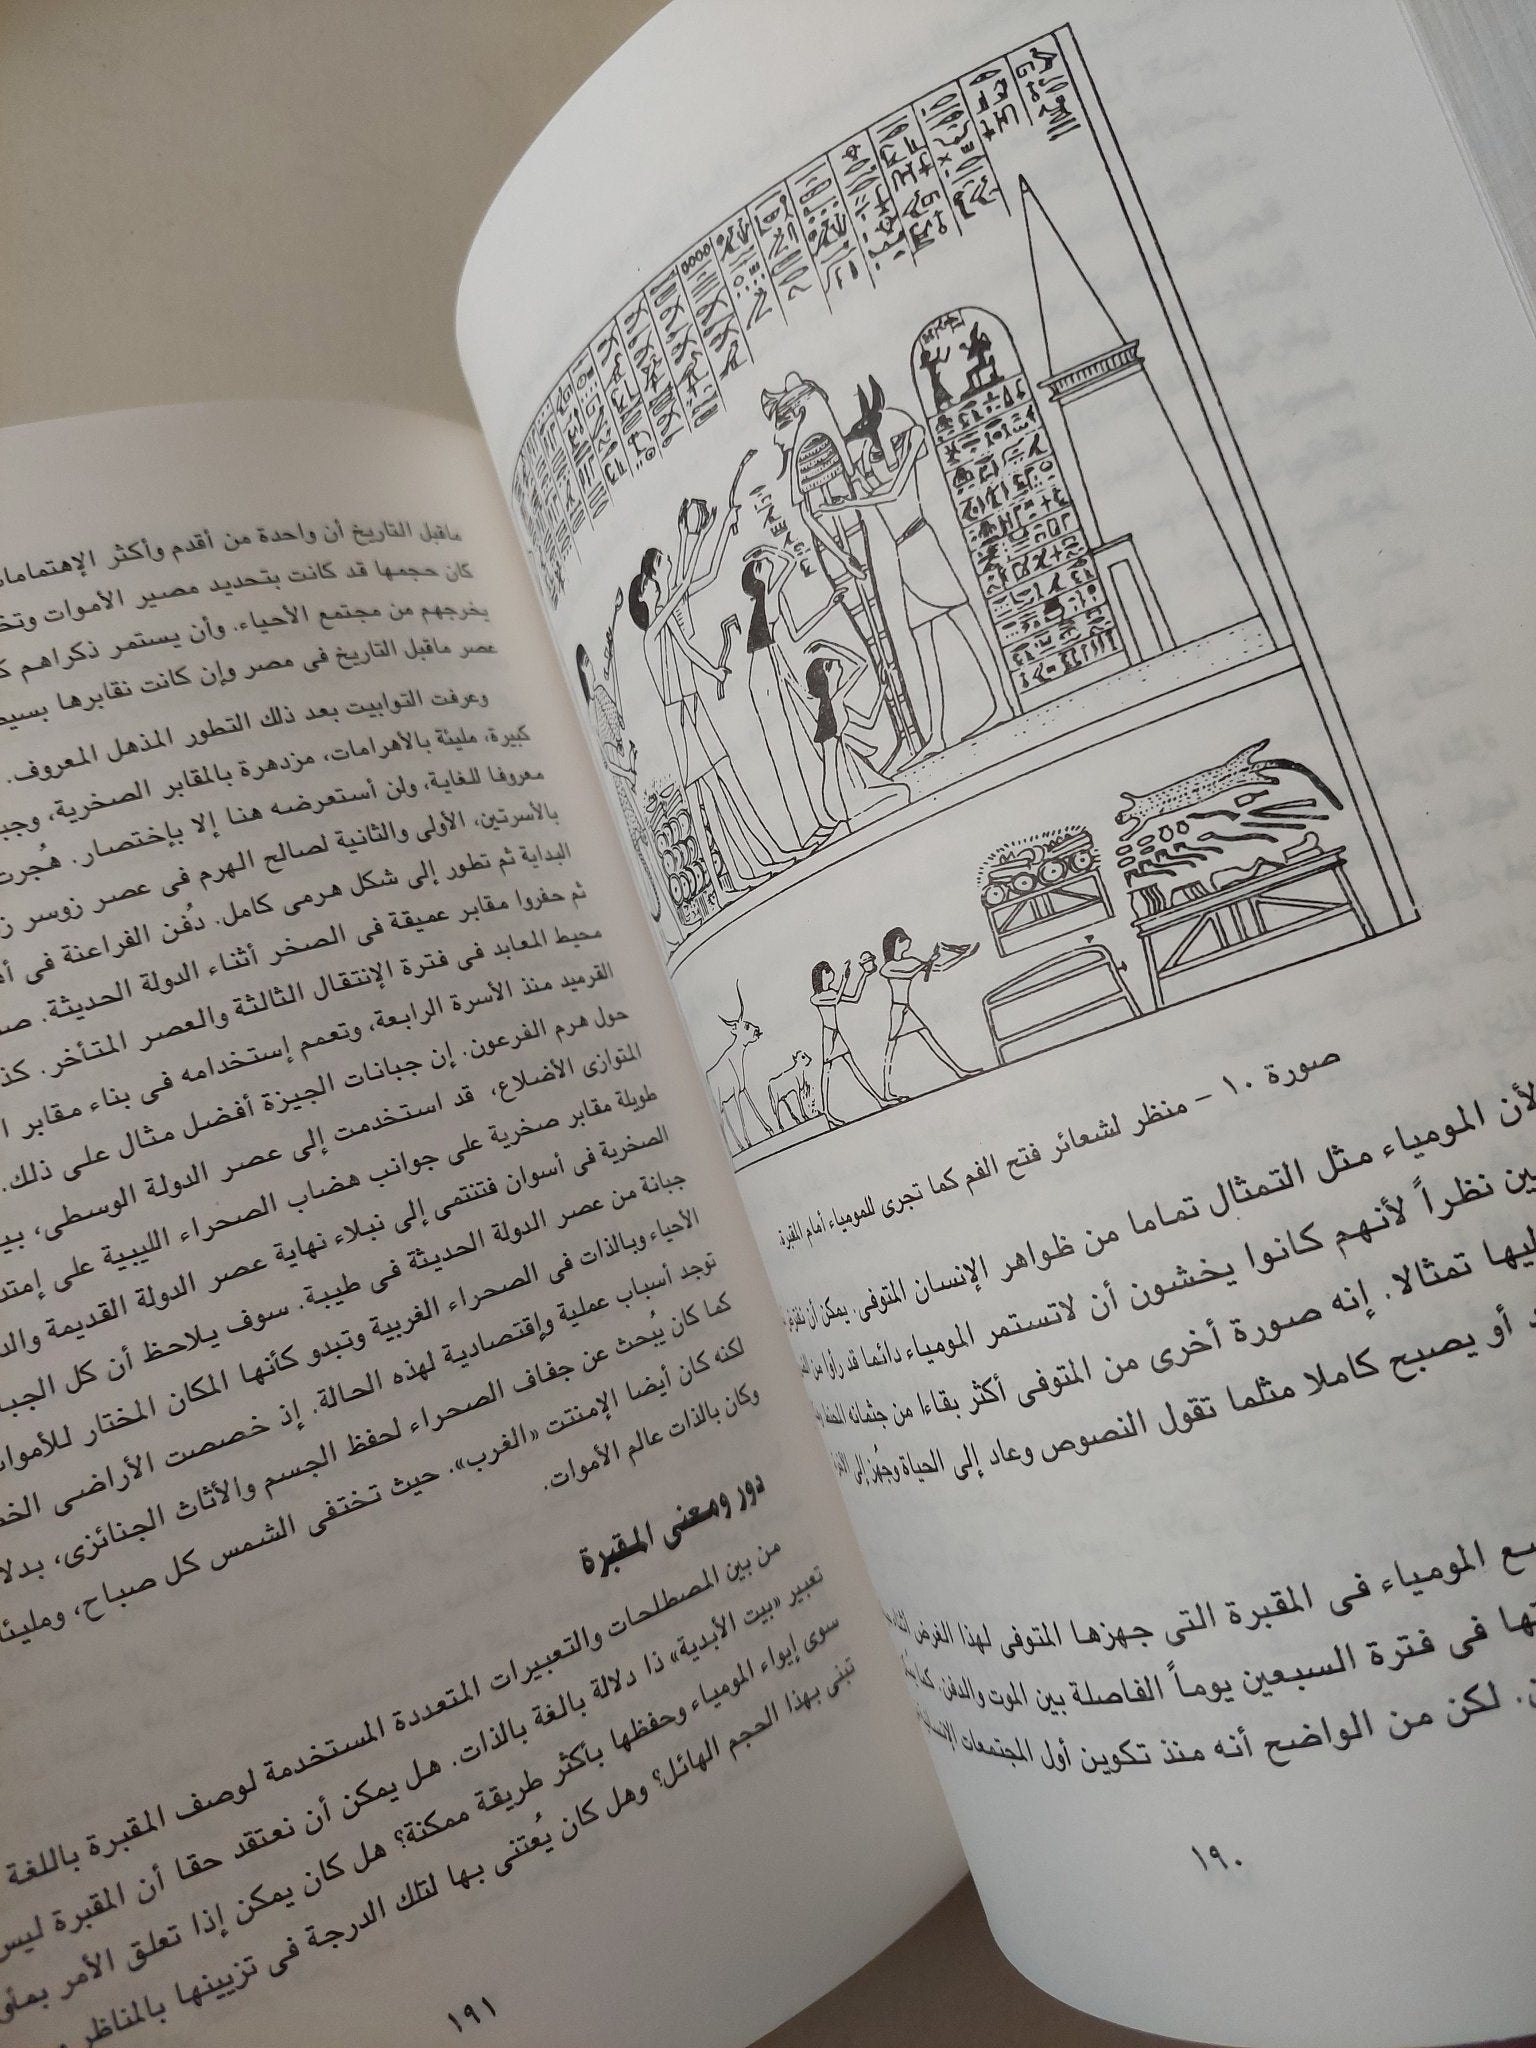 صورة ١٠ - منظر لشعائر فتح الفم كما تجرى للمومياء أمام المقبرة.
لأن المومياء مثل التمثال تماما من ظواهر الإنسان المتوفى. يمكن أن
نظراً لأنهم كانوا يخشون أن لاتستمر المومياء دائما قد رأوا من
تمثالا. إنه صورة أخرى من المتوفى أكثر بقاءا من جثمانه
أو يصبح كاملا مثلما تقول النصوص وعاد إلى الحياة وجُهز إلى
المومياء فى المقبرة التى جهزها المتوفى لهذا الغرض
فى فترة السبعين يوماً الفاصلة بين الموت والدفن. كما
لكن من الواضح أنه منذ تكوين أول المجتمعات
١٩٠
ماقبل التاريخ أن واحدة من أقدم وأكثر
كان حجمها قد كانت بتحديد مصير الأموات
يخرجهم من مجتمع الأحياء. وأن يستمر ذكراهم
عصر ماقبل التاريخ فى مصر وإن كانت نقابرها
وعرفت التوابيت بعد ذلك التطور المذهل المعروف.
كبيرة، مليئة بالأهرامات، مزدهرة بالمقابر الصخرية،
معروفا للغاية، ولن أستعرضه هنا إلا بإختصار. هُجرت
بالأسرتين، الأولى والثانية لصالح الهرم فى عصر زوسر
البداية ثم تطور إلى شكل هرمى كامل. دُفن الفراعنة فى
ثم حفروا مقابر عميقة فى الصخر أثناء الدولة الحديثة.
محيط المعابد فى فترة الإنتقال الثالثة والعصر المتأخر.
القرميد منذ الأسرة الرابعة، وتعمم إستخدامه فى بناء مقابر
حول هرم الفرعون. إن جبانات الجيزة أفضل مثال على ذلك.
المتوازى الأضلاع، قد استخدمت إلى عصر الدولة الوسطى،
طويلة مقابر صخرية على جوانب هضاب الصحراء الليبية على
الصخرية فى أسوان فتنتمى إلى نبلاء نهاية عصر الدولة القديمة
جبانة من عصر الدولة الحديثة فى طيبة. سوف يلاحظ أن كل
الأحياء وبالذات فى الصحراء الغربية وتبدو كأنها المكان المختار للأموات
توجد أسباب عملية وإقتصادية لهذه الحالة. إذ خصصت الأراضى
كما كان يُبحث عن جفاف الصحراء لحفظ الجسم والأثاث الجنائزى،
لكنه كان أيضا الإمنتت «الغرب». حيث تختفى الشمس كل صباح،
وكان بالذات عالم الأموات.
دور ومعنى المقبرة
من بين المصطلحات والتعبيرات المتعددة المستخدمة لوصف المقبرة باللغة
تعبير «بيت الأبدية» ذا دلالة بالغة بالذات. هل يمكن أن نعتقد حقا أن المقبرة
سوى إيواء المومياء وحفظها بأكثر طريقة ممكنة؟ هل كان يمكن إذا تعلق الأمر
تبنى بهذا الحجم الهائل؟ وهل كان يُعتنى بها لتلك الدرجة فى تزيينها بالمناظر
١٩١